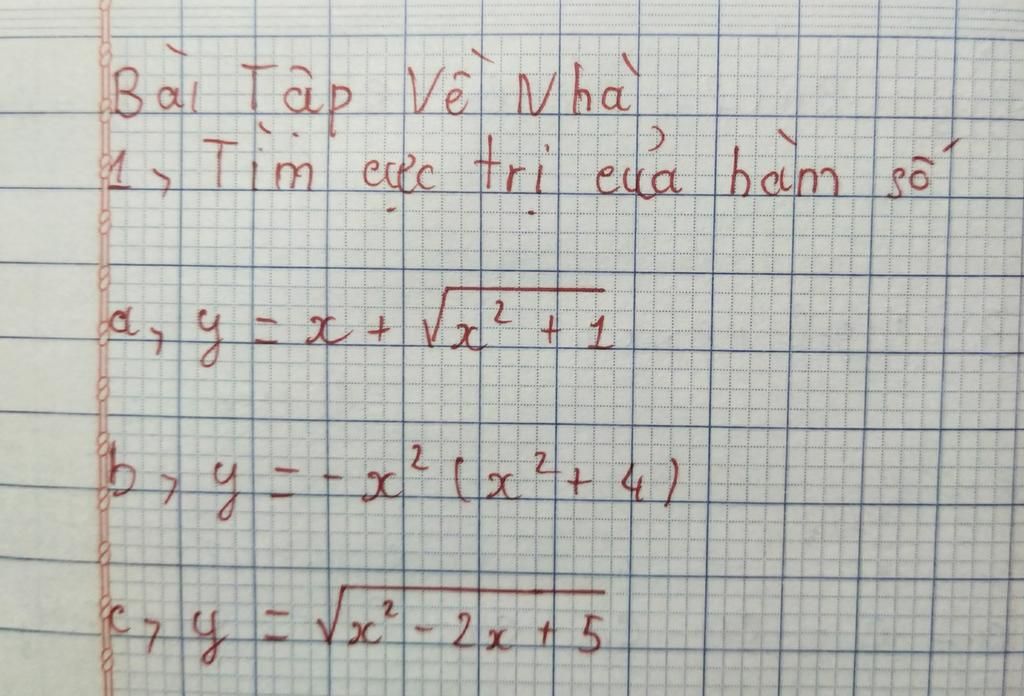 Bài Tập Về Nhà
1, Tìm cực trị của hàm số
a, y = x + √x² + 1
b, y = -x² (x² + 4)
c, y = √x² - 2x + 5